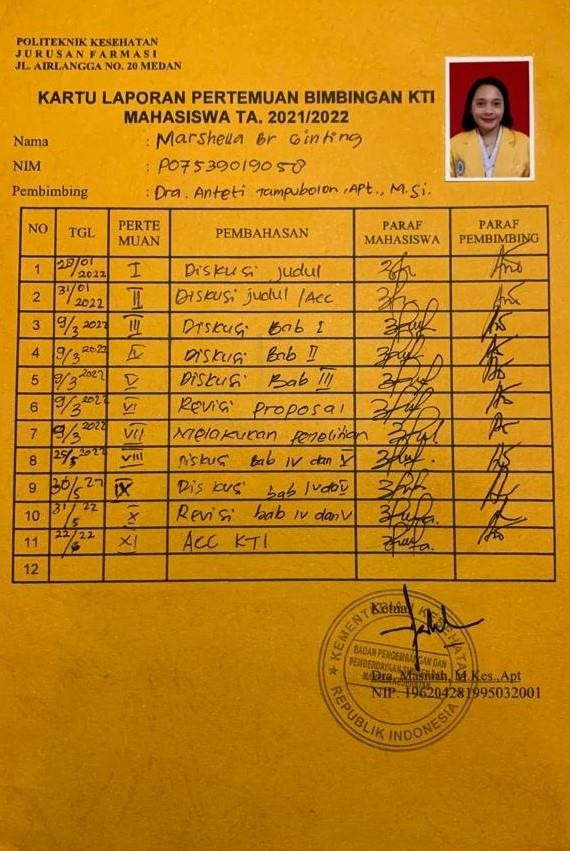 POLITEKNIK KESEHATAN
JURUSAN FARMASI
JL. AIRLANGGA NO. 20 MEDAN
KARTU LAPORAN PERTEMUAN BIMBINGAN KTI
MAHASISWA TA. 2021/2022
Nama : Marshella Br Ginting
NIM : P07539019058
Pembimbing : Dra. Anteti Tampubolon, Apt., M.Si.
NO TGL PERTE MUAN PEMBAHASAN PARAF MAHASISWA PARAF PEMBIMBING
1 28/01 2022 I Diskusi judul
2 31/01 2022 II Diskusi judul /Acc
3 9/3 2022 III Diskusi Bab I
4 9/3 2022 IV Diskusi Bab II
5 9/3 2022 V Diskusi Bab III
6 9/3 2022 VI Revisi proposal
7 9/3 2022 VII Melakukan penelitian
8 25/5 2022 VIII Diskusi Bab IV dan V
9 30/5 22 IX Diskusi bab IV dan V
10 31/5 22 X Revisi bab IV dan V
11 22/ 22 XI ACC KTI
12
Ketua
KEMENTERIAN KESEHATAN
BADAN PENGEMBANGAN DAN
PEMBERDAYAAN
Dra. Masniah, M.Kes.,Apt
NIP. 196204281995032001
REPUBLIK INDONESIA